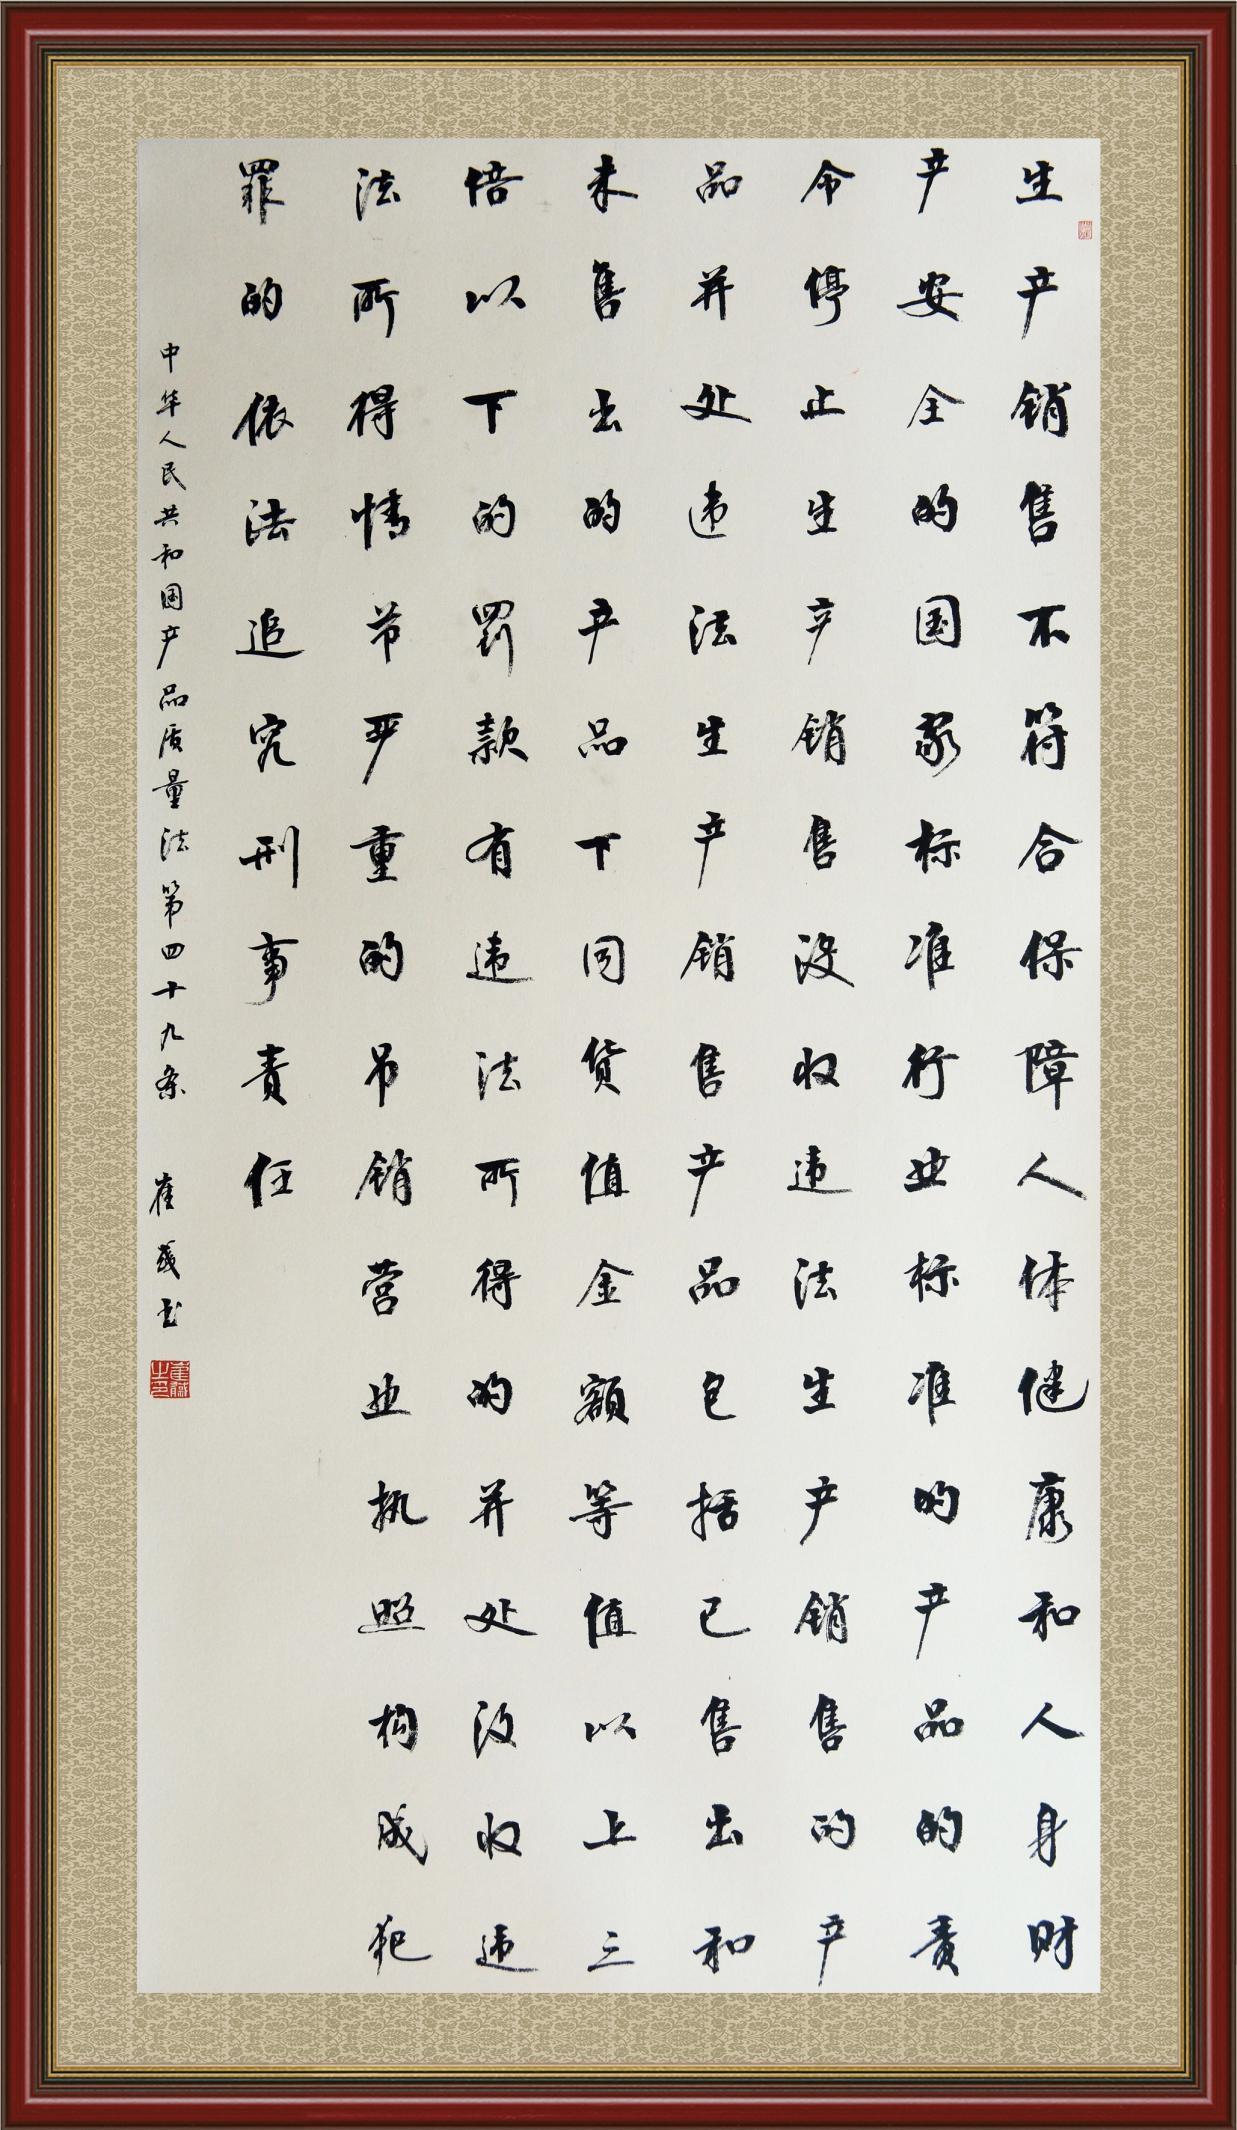 生产销售不符合保障人体健康和人身财
产安全的国家标准行业标准的产品的责
令停止生产销售没收违法生产销售的产
品并处违法生产销售产品包括已售出和
未售出的产品下同货值金额等值以上三
倍以下的罚款有违法所得的并处没收违
法所得情节严重的吊销营业执照构成犯
罪的依法追究刑事责任
中华人民共和国产品质量法第四十九条 崔书